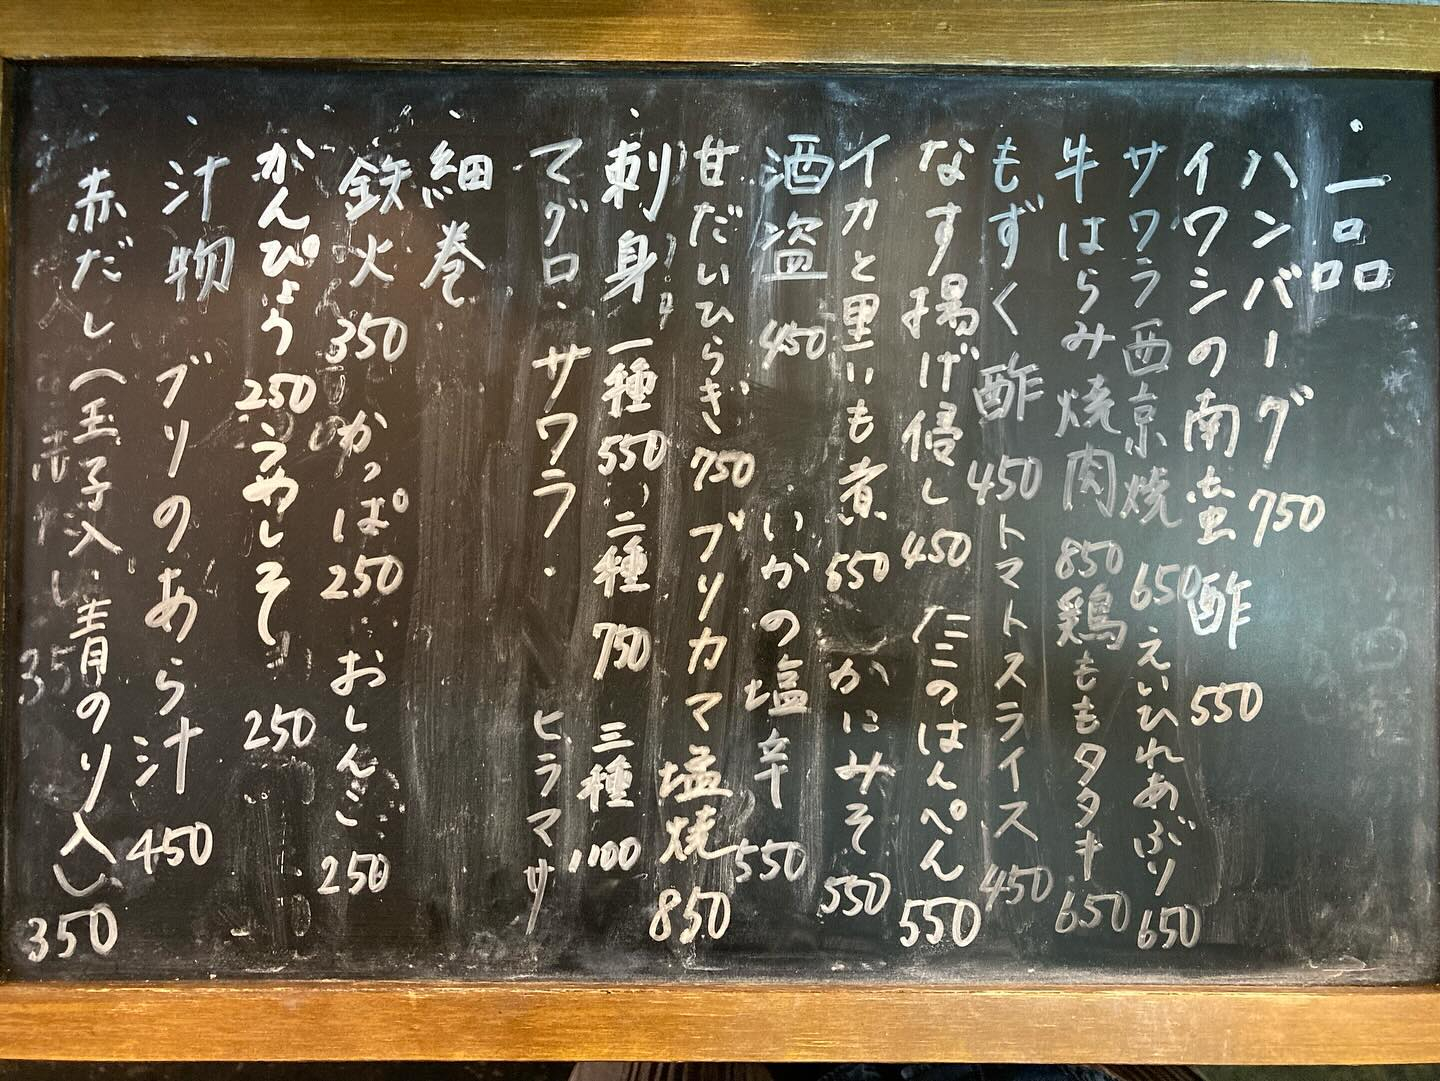 一品
ハンバーグ 750
イワシの南蛮酢 550
サワラ西京焼 650 えいひれあぶり 650
牛はらみ焼肉 850 鶏ももタタキ 650
もずく酢 450 トマトスライス 450
なす揚げ侵し 450 たこのはんぺん 550
イカと里いも煮 550 かにみそ 550
酒盗 450 いかの塩辛 550
甘だいひらぎ 750 ブリカマ塩焼 850
刺身 一種 550 二種 750 三種 1100
マグロ・サワラ・ ヒラマサ
細巻
鉄火 350 かっぱ 250 おしんこ 250
かんぴょう 250 うめしそ 250
汁物 ブリのあら汁 450
赤だし(玉子入し 青のり入し 350